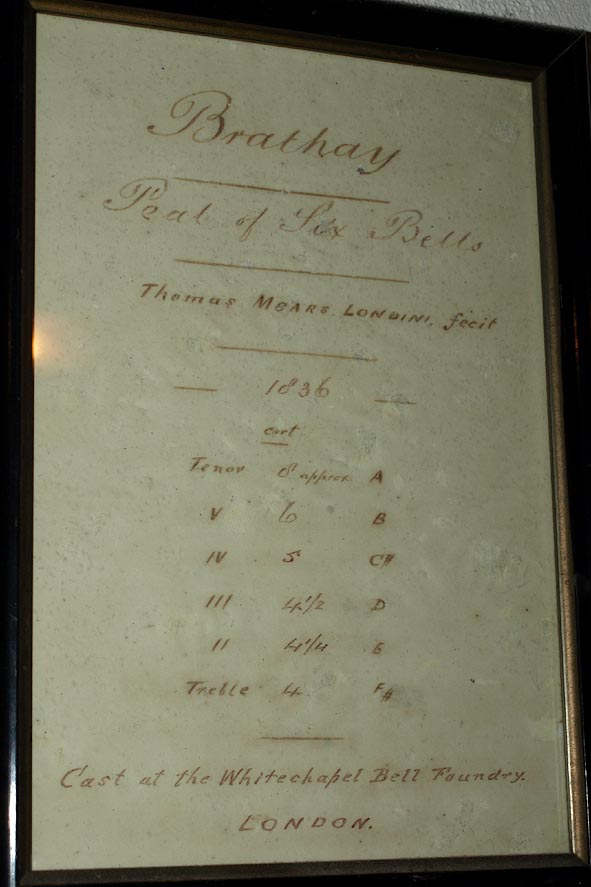 Brathay
Peal of Six Bells
Thomas MEARS LONDINI, fecit
1836
cwt
Tenor 8 approx A
V 6 B
IV 5 C#
III 4 1/2 D
II 4 1/4 E
Treble 4 F#
Cast at the Whitechapel Bell Foundry.
LONDON.